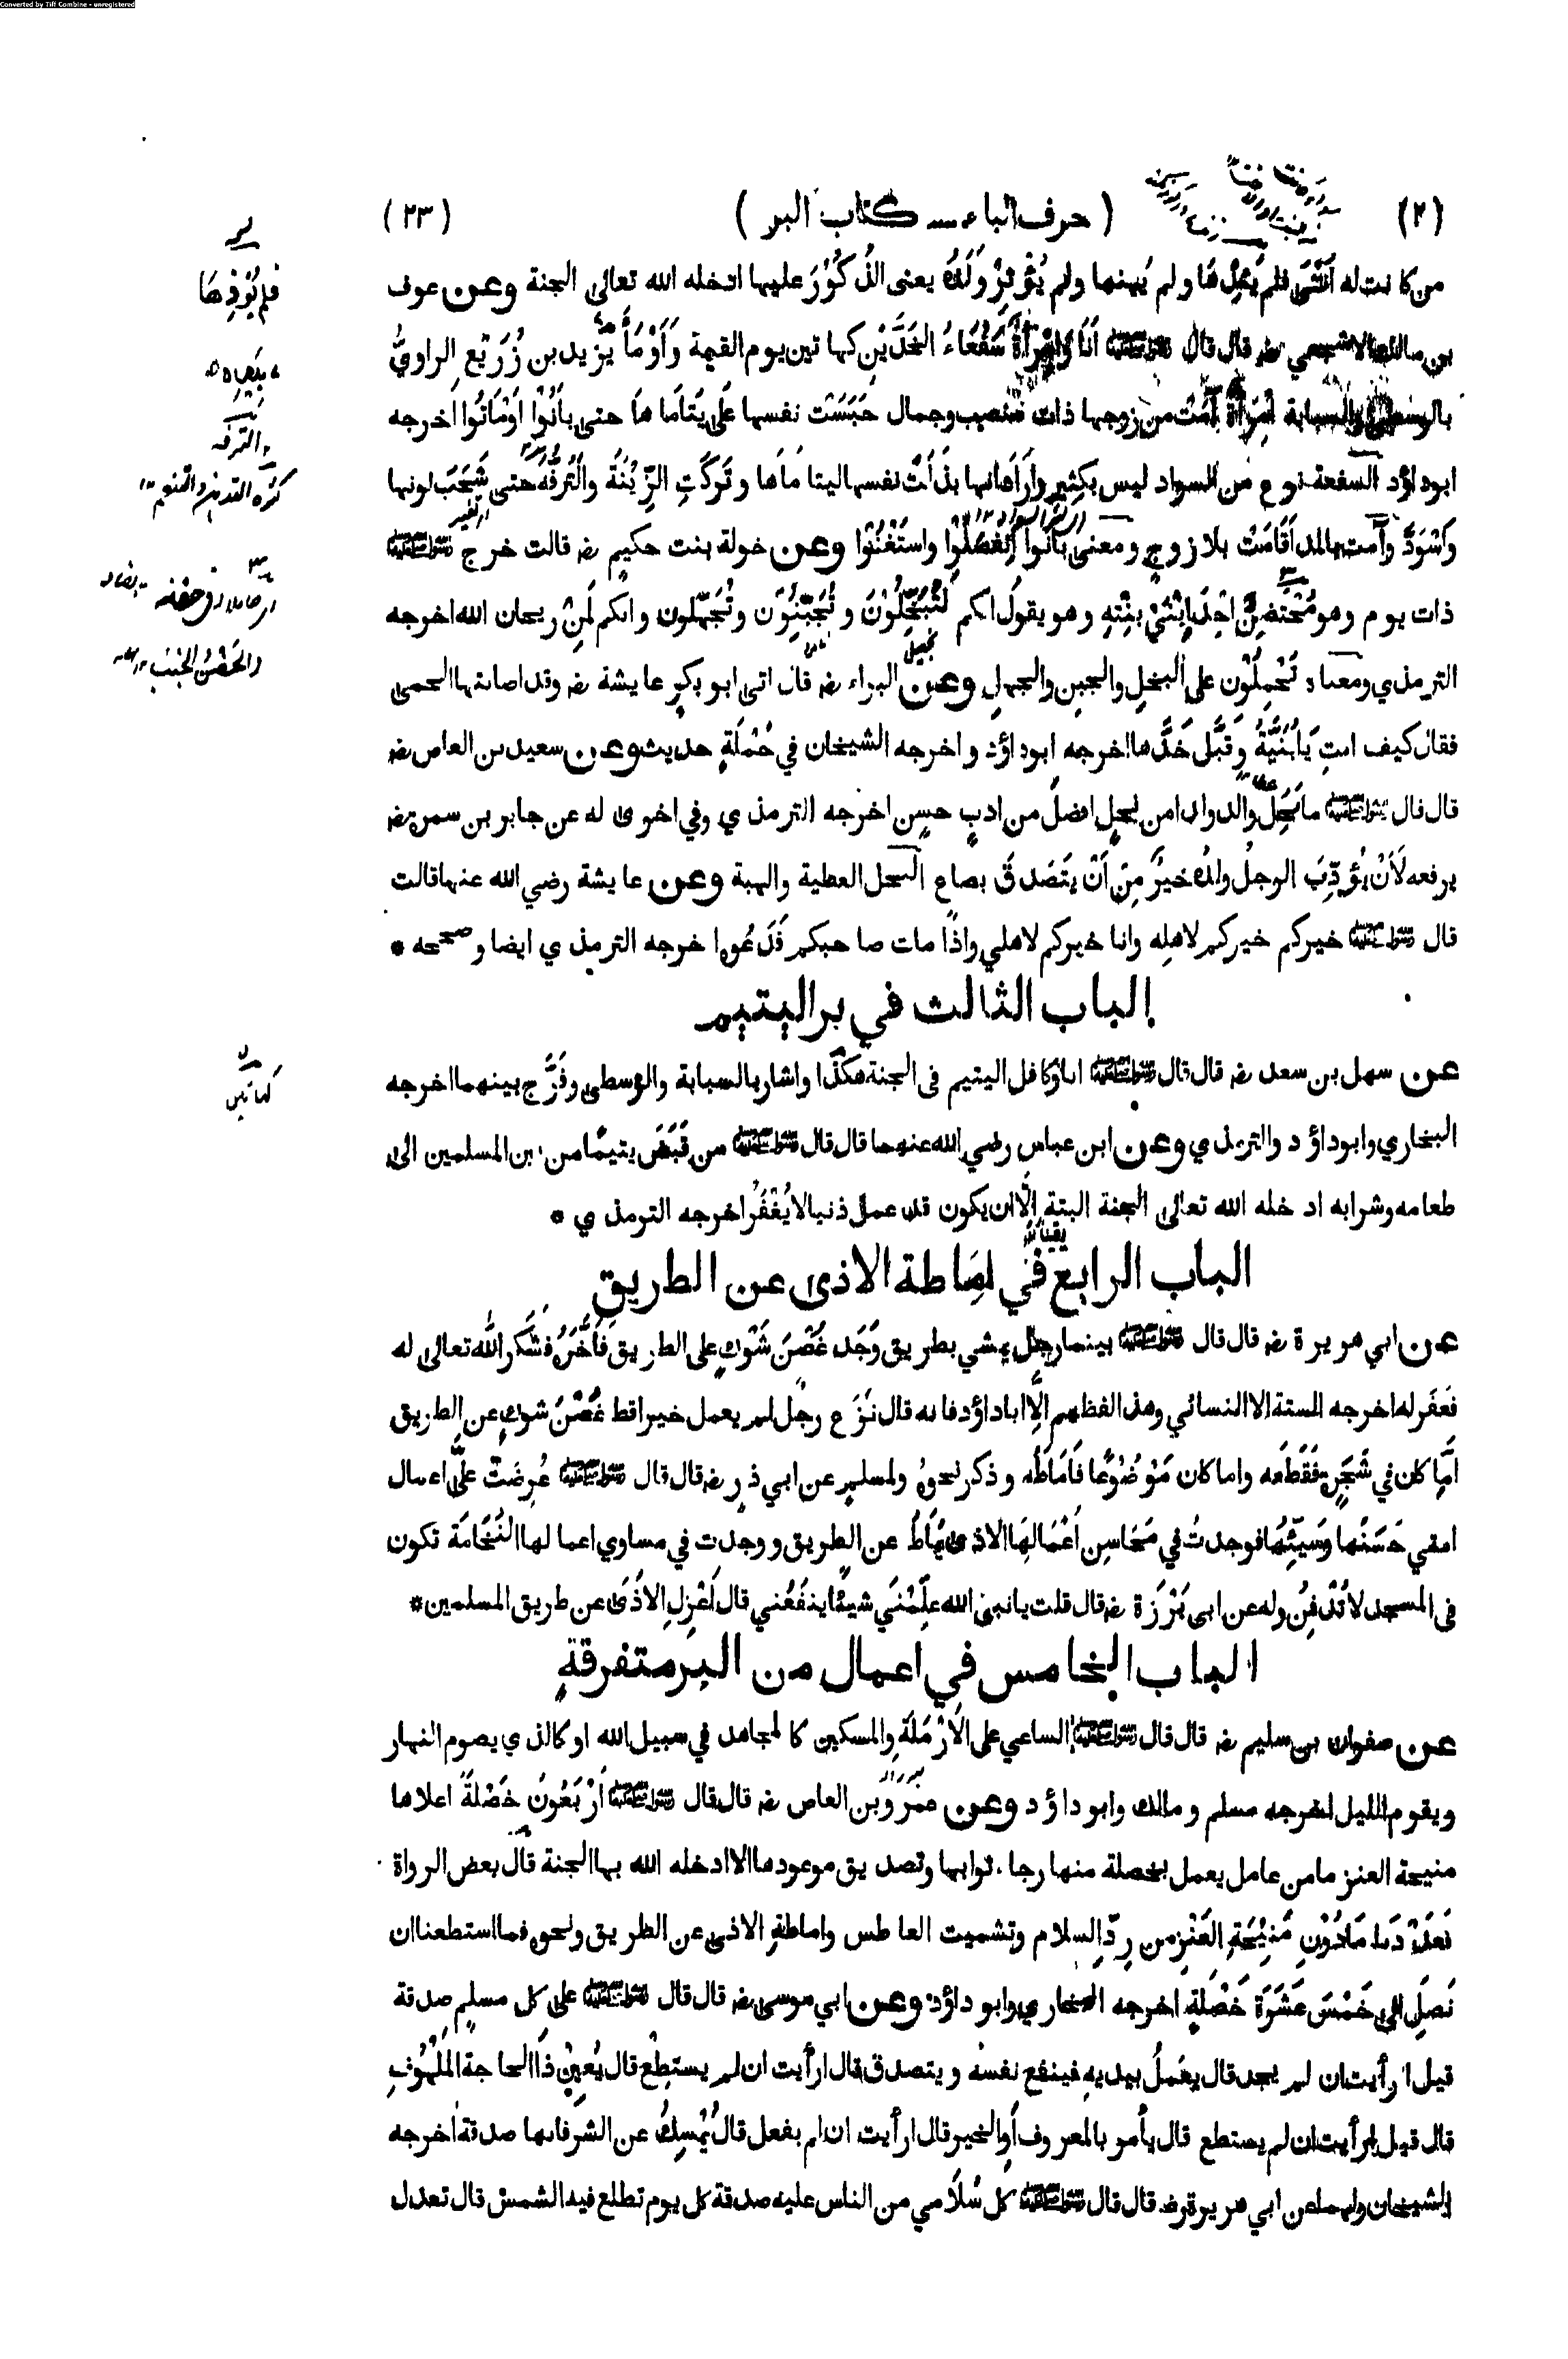 Converted by Tiff Combine - unregistered
(٢) ( حرف الباء — كتاب البر ) (٢٣)
من كانت له انثى فلم يئدها ولم يهنها ولم يؤثر ولده يعنى الذكور عليها ادخله الله تعالى الجنة وعن عوف
بن مالك الاشجعي رضـ قال قال رسول الله صلى الله عليه وسلم انا وامرأة سفعاء الخدين كهاتين يوم القيمة وأومأ يزيد بن زريع الراوي
بالوسطى والسبابة امرأة آمت من زوجها ذات منصب وجمال حبست نفسها على يتاماها حتى بانوا او ماتوا اخرجه
ابو داؤد السفعة نوع من السواد ليس بكثير واراد انها بذلت نفسها ليتاماها وتركت الزينة والترفه حتى شحب لونها
واسود وآمت بالمد اقامت بلا زوج ومعنى بانوا انفصلوا واستغنوا وعن خولة بنت حكيم رضـ قالت خرج رسول الله صلى الله عليه وسلم
ذات يوم وهو محتضن احد ابني بنته وهو يقول انكم لتبخلون وتجبنون وتجهلون وانكم لمن ريحان الله اخرجه
الترمذي ومعناه تحملون على البخل والجبن والجهل وعن البراء رضـ قال اتى ابو بكر عايشة رضـ وقد اصابتها الحمى
فقال كيف انت يا بنية وقبل خدها اخرجه ابو داؤد واخرجه الشيخان في جملة حديث وعن سعيد بن العاص رضـ
قال قال رسول الله صلى الله عليه وسلم ما نحل والد ولدا من نحل افضل من ادب حسن اخرجه الترمذي وفي اخرى له عن جابر بن سمرة رضـ
يرفعه لأن يؤدب الرجل ولده خير من أن يتصدق بصاع النحل العطية والهبة وعن عايشة رضي الله عنها قالت
قال رسول الله صلى الله عليه وسلم خيركم خيركم لاهله وانا خيركم لاهلي واذا مات صاحبكم فدعوه اخرجه الترمذي ايضا وصححه *
الباب الثالث في بر اليتيم
عن سهل بن سعد رضـ قال قال رسول الله صلى الله عليه وسلم انا وكافل اليتيم في الجنة هكذا واشار بالسبابة والوسطى وفرج بينهما اخرجه
البخاري وابو داؤد والترمذي وعن ابن عباس رضي الله عنهما قال قال رسول الله صلى الله عليه وسلم من قبض يتيما من بين المسلمين الى
طعامه وشرابه ادخله الله تعالى الجنة البتة الا ان يكون قد عمل ذنبا لا يغفر اخرجه الترمذي *
الباب الرابع في اماطة الاذى عن الطريق
عن ابي هريرة رضـ قال قال رسول الله صلى الله عليه وسلم بينما رجل يمشي بطريق وجد غصن شوك على الطريق فأخره فشكر الله تعالى له
فغفر له اخرجه الستة الا النسائي وهذا لفظهم الا ابا داؤد فانه قال نزع رجل لم يعمل خيرا قط غصن شوك عن الطريق
اما كان في شجرة فقطعه واما كان موضوعا فاماطه وذكر نحوه ولمسلم عن ابي ذر رضـ قال قال رسول الله صلى الله عليه وسلم عرضت علي اعمال
امتي حسنها وسيئها فوجدت في محاسن اعمالها الاذى يماط عن الطريق ووجدت في مساوي اعمالها النخامة تكون
في المسجد لا تدفن وله عن ابى برزة رضـ قال قلت يا نبي الله علمني شيئا ينفعني قال اعزل الاذى عن طريق المسلمين *
الباب الخامس في اعمال من البر متفرقة
عن صفوان بن سليم رضـ قال قال رسول الله صلى الله عليه وسلم الساعي على الارملة والمسكين كالمجاهد في سبيل الله او كالذي يصوم النهار
ويقوم الليل اخرجه مسلم ومالك وابو داؤد وعن عمرو بن العاص رضـ قال قال رسول الله صلى الله عليه وسلم أربعون خصلة اعلاها
منيحة العنز ما من عامل يعمل بخصلة منها رجاء ثوابها وتصديق موعودها الا ادخله الله بها الجنة قال بعض الرواة
فعددنا ما دون منيحة العنز من رد السلام وتشميت العاطس واماطة الاذى عن الطريق ونحوه فما استطعنا ان
نصل الى خمس عشرة خصلة اخرجه البخاري وابو داؤد وعن ابي موسى رضـ قال قال رسول الله صلى الله عليه وسلم على كل مسلم صدقة
قيل ارأيت ان لم يجد قال يعمل بيديه فينفع نفسه ويتصدق قال ارأيت ان لم يستطع قال يعين ذا الحاجة الملهوف
قال قيل ارأيت ان لم يستطع قال يأمر بالمعروف أو الخير قال ارأيت ان لم يفعل قال يمسك عن الشر فانها صدقة اخرجه
الشيخان ولهما عن ابي هريرة رضـ قال قال رسول الله صلى الله عليه وسلم كل سلامي من الناس عليه صدقة كل يوم تطلع فيه الشمس قال تعدل